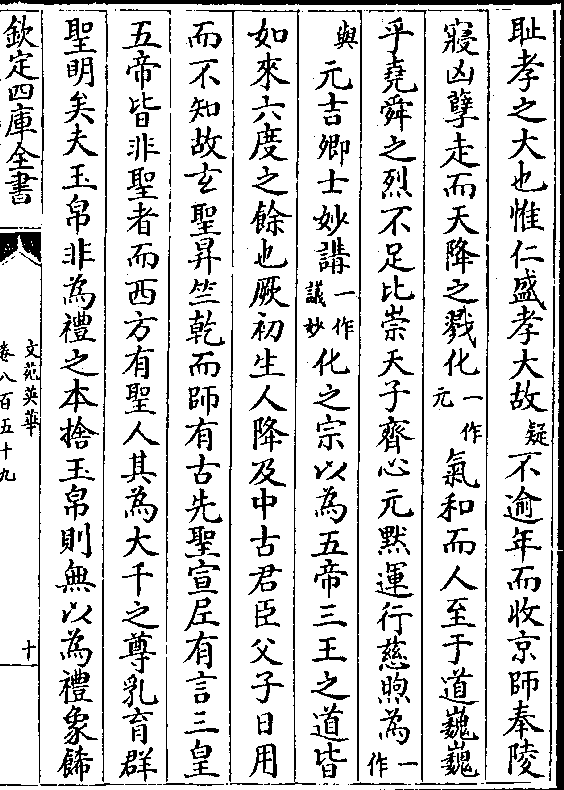 耻孝之大也惟仁盛孝大故疑不逾年而收京師奉陵
寢凶孽走而天降之戮化一作元氣和而人至于道巍巍
乎堯舜之烈不足比崇天子齊心元默運行慈煦為一作
與元吉卿士妙講一作議妙化之宗以為五帝三王之道皆
如來六度之餘也厥初生人降及中古君臣父子日用
而不知故玄聖昇竺乾而師有古先聖宣尼有言三皇
五帝皆非聖者而西方有聖人其為大千之尊乳育群
聖明矣夫玉帛非為禮之本捨玉帛則無以為禮象飾
欽定四庫全書
文苑英華
卷八百五十九
十